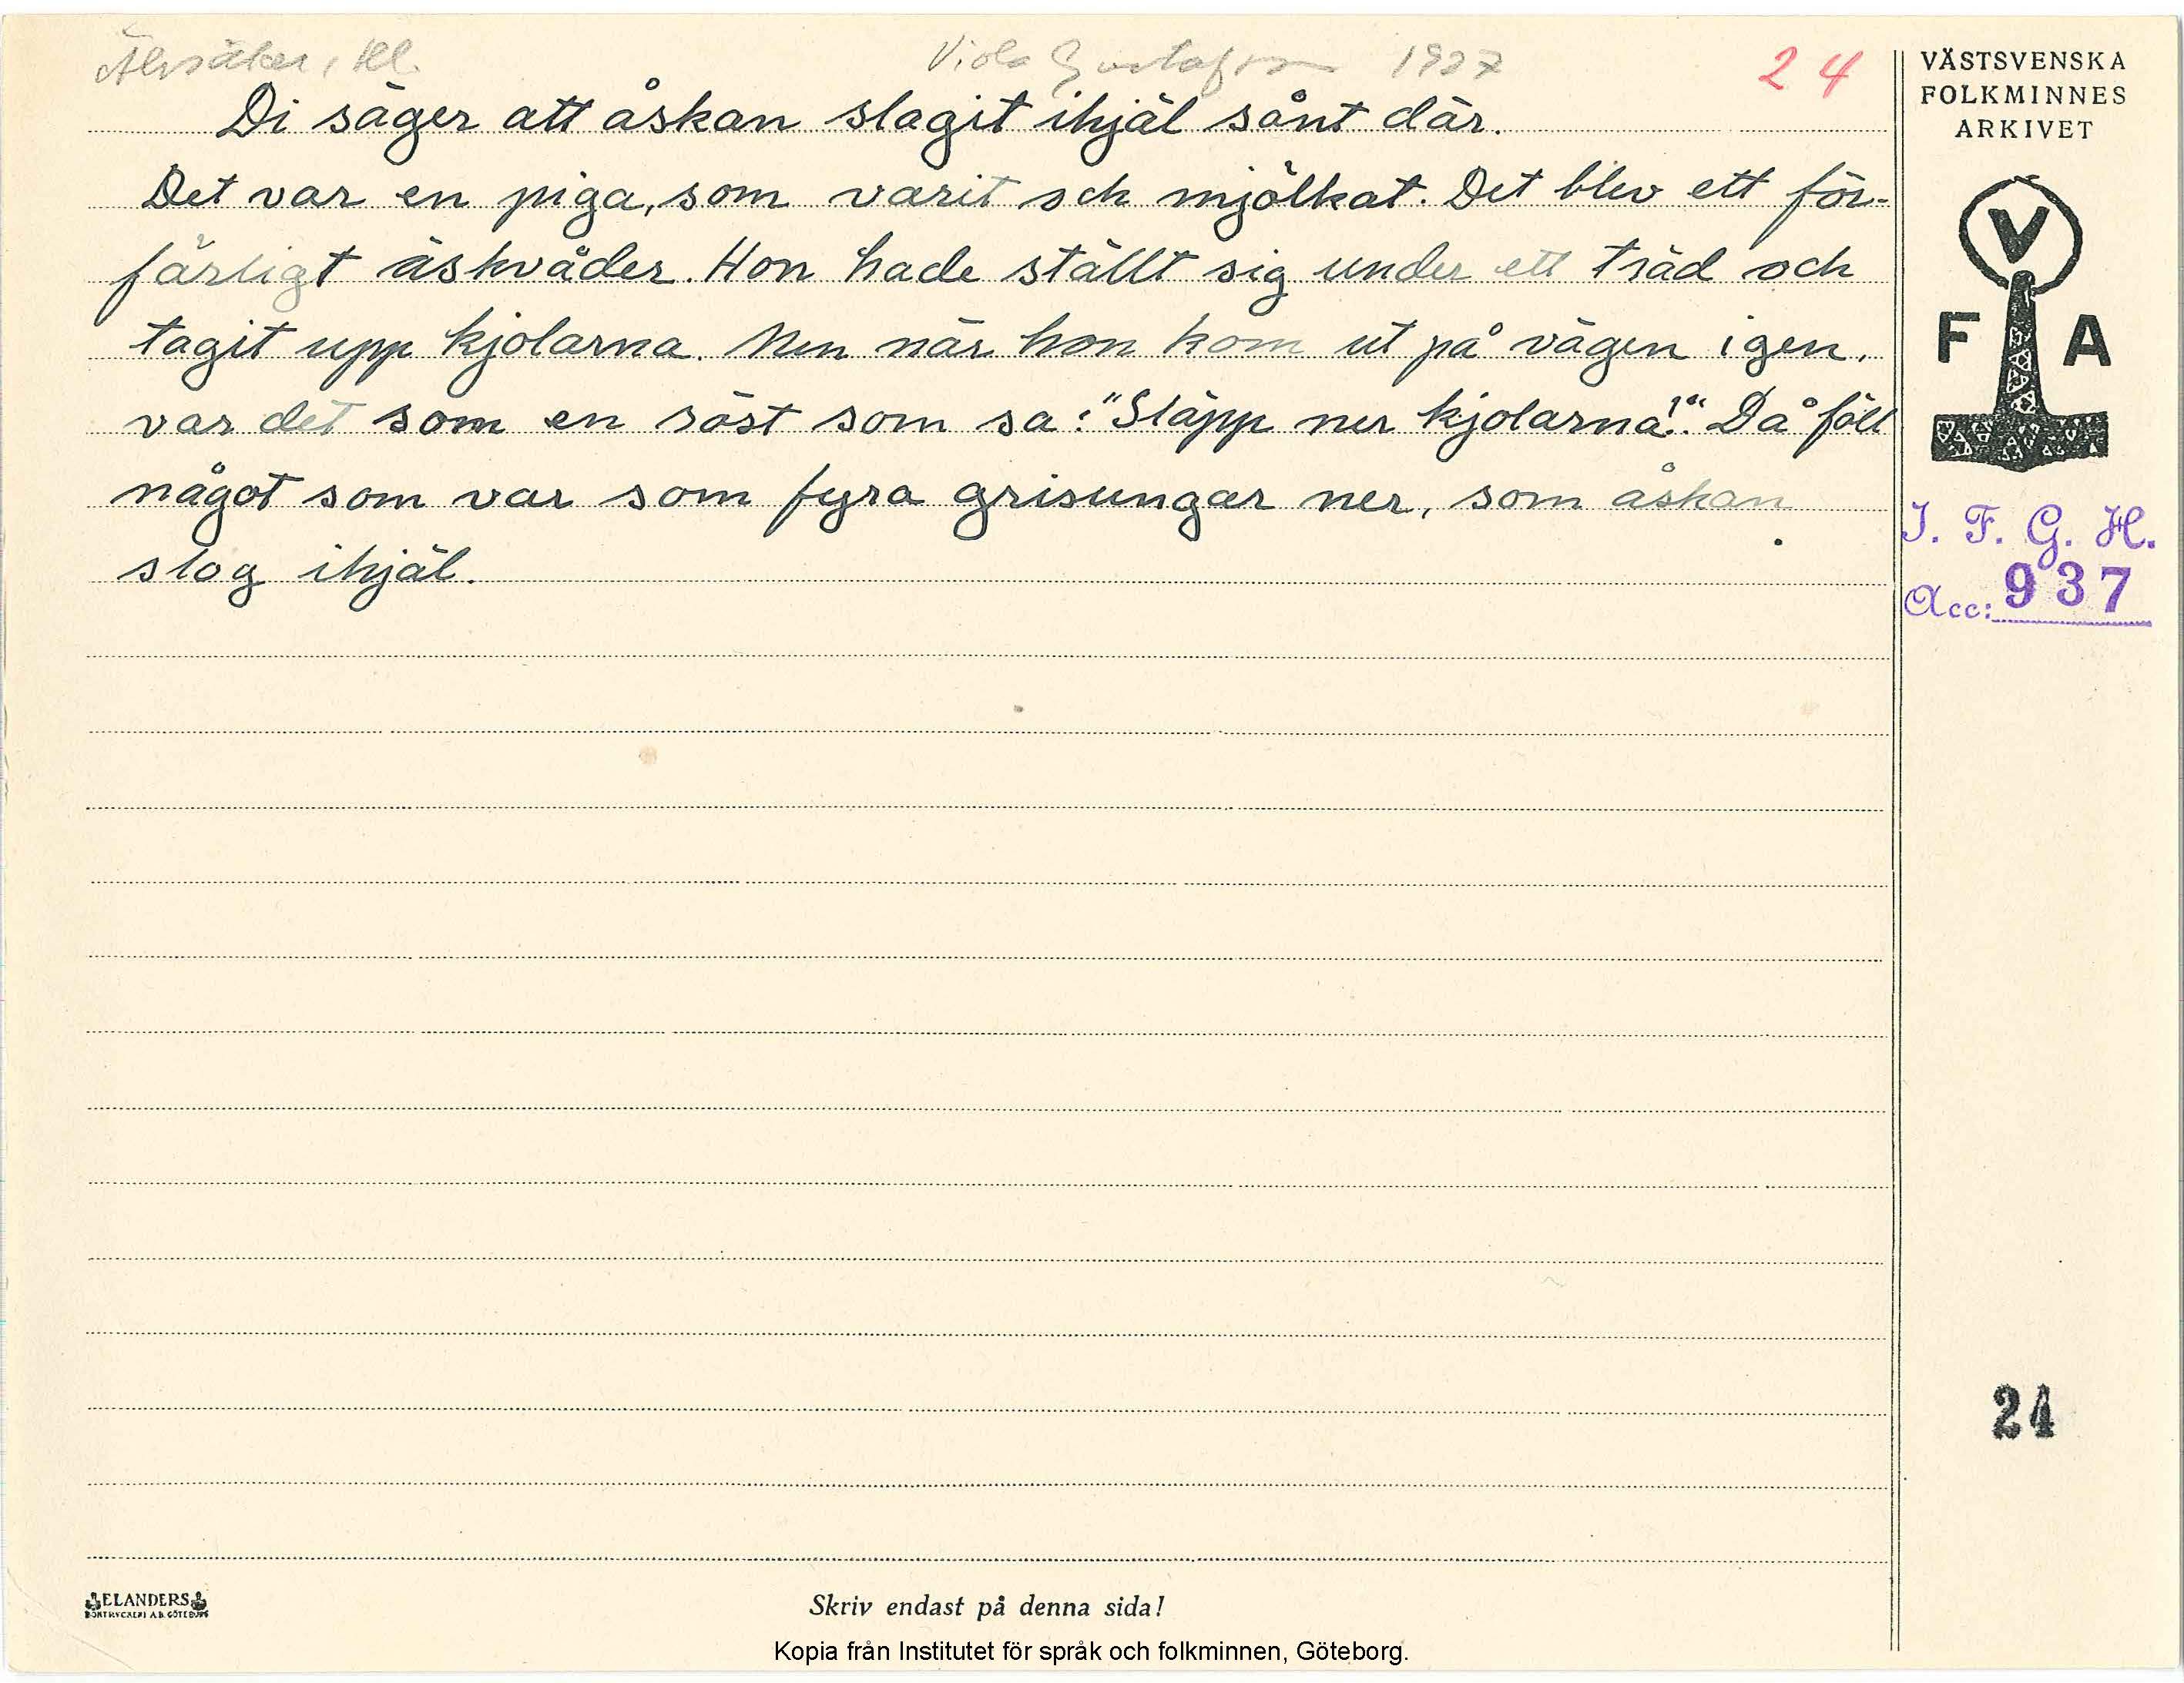 Älvsåker, Hl.
Viola Gustafsson 1927
24
Di säger att åskan slagit ihjäl sånt där.
Det var en piga, som varit och mjölkat. Det blev ett för-
färligt åskväder. Hon hade ställt sig under ett träd och
tagit upp kjolarna. Men när hon kom ut på vägen igen,
var det som en röst som sa: "Släpp ner kjolarna!". Då föll
något som var som fyra grisungar ner, som åskan
slog ihjäl.
VÄSTSVENSKA
FOLKMINNES
ARKIVET
V
F A
I. F. G. H.
Acc: 937
24
ELANDERS
BOKTRYCKERI A.B. GÖTEBORG
Skriv endast på denna sida!
Kopia från Institutet för språk och folkminnen, Göteborg.